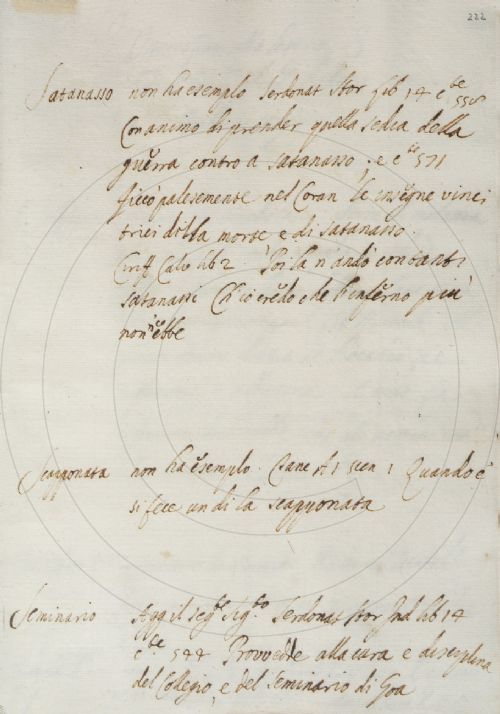 222
Satanasso non ha esempio Serdonat Stor lib 14 c.te 558
Con animo di prender quella sedia della
guerra contro a satanasso, e c.te 571
ficcò palesemente nel Coran le insegne vinci
trici della morte e di satanasso.
Ciriff Calv lib 2. Poi la n'andò con tanti
satanassi Ch'io credo che l'inferno più
non n'ebbe
Scapponata non ha esempio. At 1 scen 1 Quando e'
si fece un dì la scapponata
Seminario Agg il seg.te sig.to Serdonat Stor Ind lib 14
c.te 544 Provvedde alla cura e disciplina
del Collegio, e del Seminario di Goa